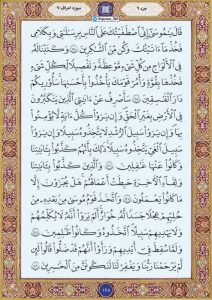 جزء ۹
سوره اعراف ۷
قَالَ يَٰمُوسَىٰٓ إِنِّي ٱصْطَفَيْتُكَ عَلَى ٱلنَّاسِ بِرِسَٰلَٰتِي وَبِكَلَٰمِي
فَخُذْ مَآ ءَاتَيْتُكَ وَكُن مِّنَ ٱلشَّٰكِرِينَ ۝ وَكَتَبْنَا لَهُۥ
فِي ٱلْأَلْوَاحِ مِن كُلِّ شَيْءٍ مَّوْعِظَةً وَتَفْصِيلًا لِّكُلِّ شَيْءٍ
فَخُذْهَا بِقُوَّةٍ وَأْمُرْ قَوْمَكَ يَأْخُذُوا۟ بِأَحْسَنِهَا سَأُو۟رِيكُمْ
دَارَ ٱلْفَٰسِقِينَ ۝ سَأَصْرِفُ عَنْ ءَايَٰتِيَ ٱلَّذِينَ يَتَكَبَّرُونَ
فِي ٱلْأَرْضِ بِغَيْرِ ٱلْحَقِّ وَإِن يَرَوْا۟ كُلَّ ءَايَةٍ لَّا يُؤْمِنُوا۟
بِهَا وَإِن يَرَوْا۟ سَبِيلَ ٱلرُّشْدِ لَا يَتَّخِذُوهُ سَبِيلًا وَإِن يَرَوْا۟
سَبِيلَ ٱلْغَيِّ يَتَّخِذُوهُ سَبِيلًا ذَٰلِكَ بِأَنَّهُمْ كَذَّبُوا۟ بِـَٔايَٰتِنَا
وَكَانُوا۟ عَنْهَا غَٰفِلِينَ ۝ وَٱلَّذِينَ كَذَّبُوا۟ بِـَٔايَٰتِنَا
وَلِقَآءِ ٱلْءَاخِرَةِ حَبِطَتْ أَعْمَٰلُهُمْ هَلْ يُجْزَوْنَ إِلَّا
مَا كَانُوا۟ يَعْمَلُونَ ۝ وَٱتَّخَذَ قَوْمُ مُوسَىٰ مِنۢ بَعْدِهِۦ مِنْ
حُلِيِّهِمْ عِجْلًا جَسَدًا لَّهُۥ خُوَارٌ أَلَمْ يَرَوْا۟ أَنَّهُۥ لَا يُكَلِّمُهُمْ
وَلَا يَهْدِيهِمْ سَبِيلًا ٱتَّخَذُوهُ وَكَانُوا۟ ظَٰلِمِينَ ۝
وَلَمَّا سُقِطَ فِيٓ أَيْدِيهِمْ وَرَأَوْا۟ أَنَّهُمْ قَدْ ضَلُّوا۟ قَالُوا۟ لَئِن
لَّمْ يَرْحَمْنَا رَبُّنَا وَيَغْفِرْ لَنَا لَنَكُونَنَّ مِنَ ٱلْخَٰسِرِينَ ۝
۱۶۸